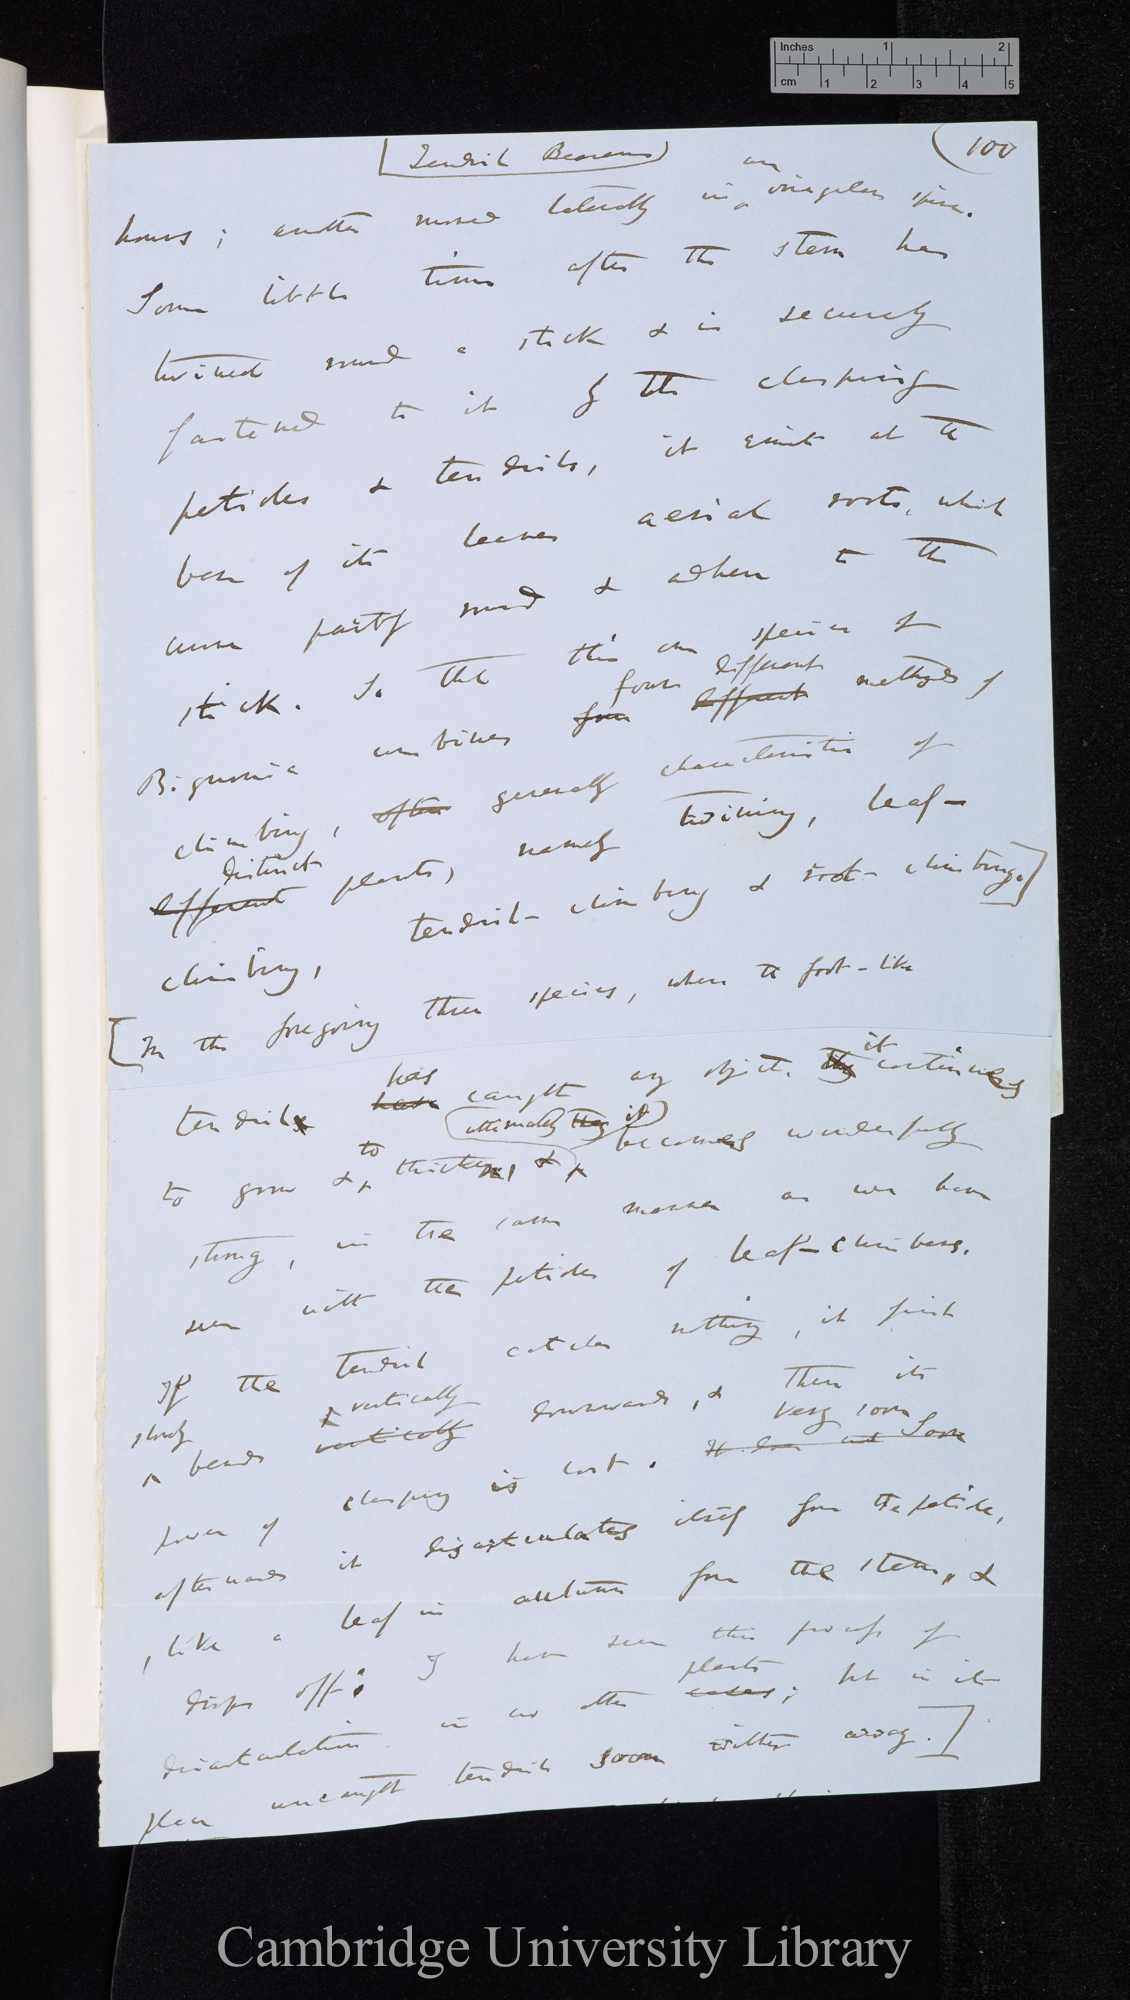 Inches 1 2
cm 1 2 3 4 5
[Tendril Bearers) (100
an
hours; another moved laterally in irregular spire.
Some little time after the stem has
twined round a stick & is securely
fastened to it by the clasping
petioles & tendrils, it emits at the
base of its leaves aerial roots, which
curve partly round & adhere to the
stick. So that this one species of
four different
Bignonia combines four different methods of
climbing, often generally characteristic of
distinct
different plants, namely twining, leaf-
climbing, tendril-climbing & root-climbing.]
[In the foregoing three species, when the foot-like
has it
tendrils have caught any object, they continues
to (ultimately they it)
to grow & thicken, & becomes wonderfully
strong, in the same manner as we have
seen with the petioles of leaf-climbers.
If the tendril catches nothing, it first
slowly vertically
bends vertically downwards, & then its
very soon
power of clasping is lost. It does not Soon
afterwards it disarticulates itself from the petiole,
like a leaf in autumn from the stem, & 
drops off: I have seen this process of
plants
disarticulation in no other cases; but in its
place uncaught tendrils soon wither away.]
Cambridge University Library